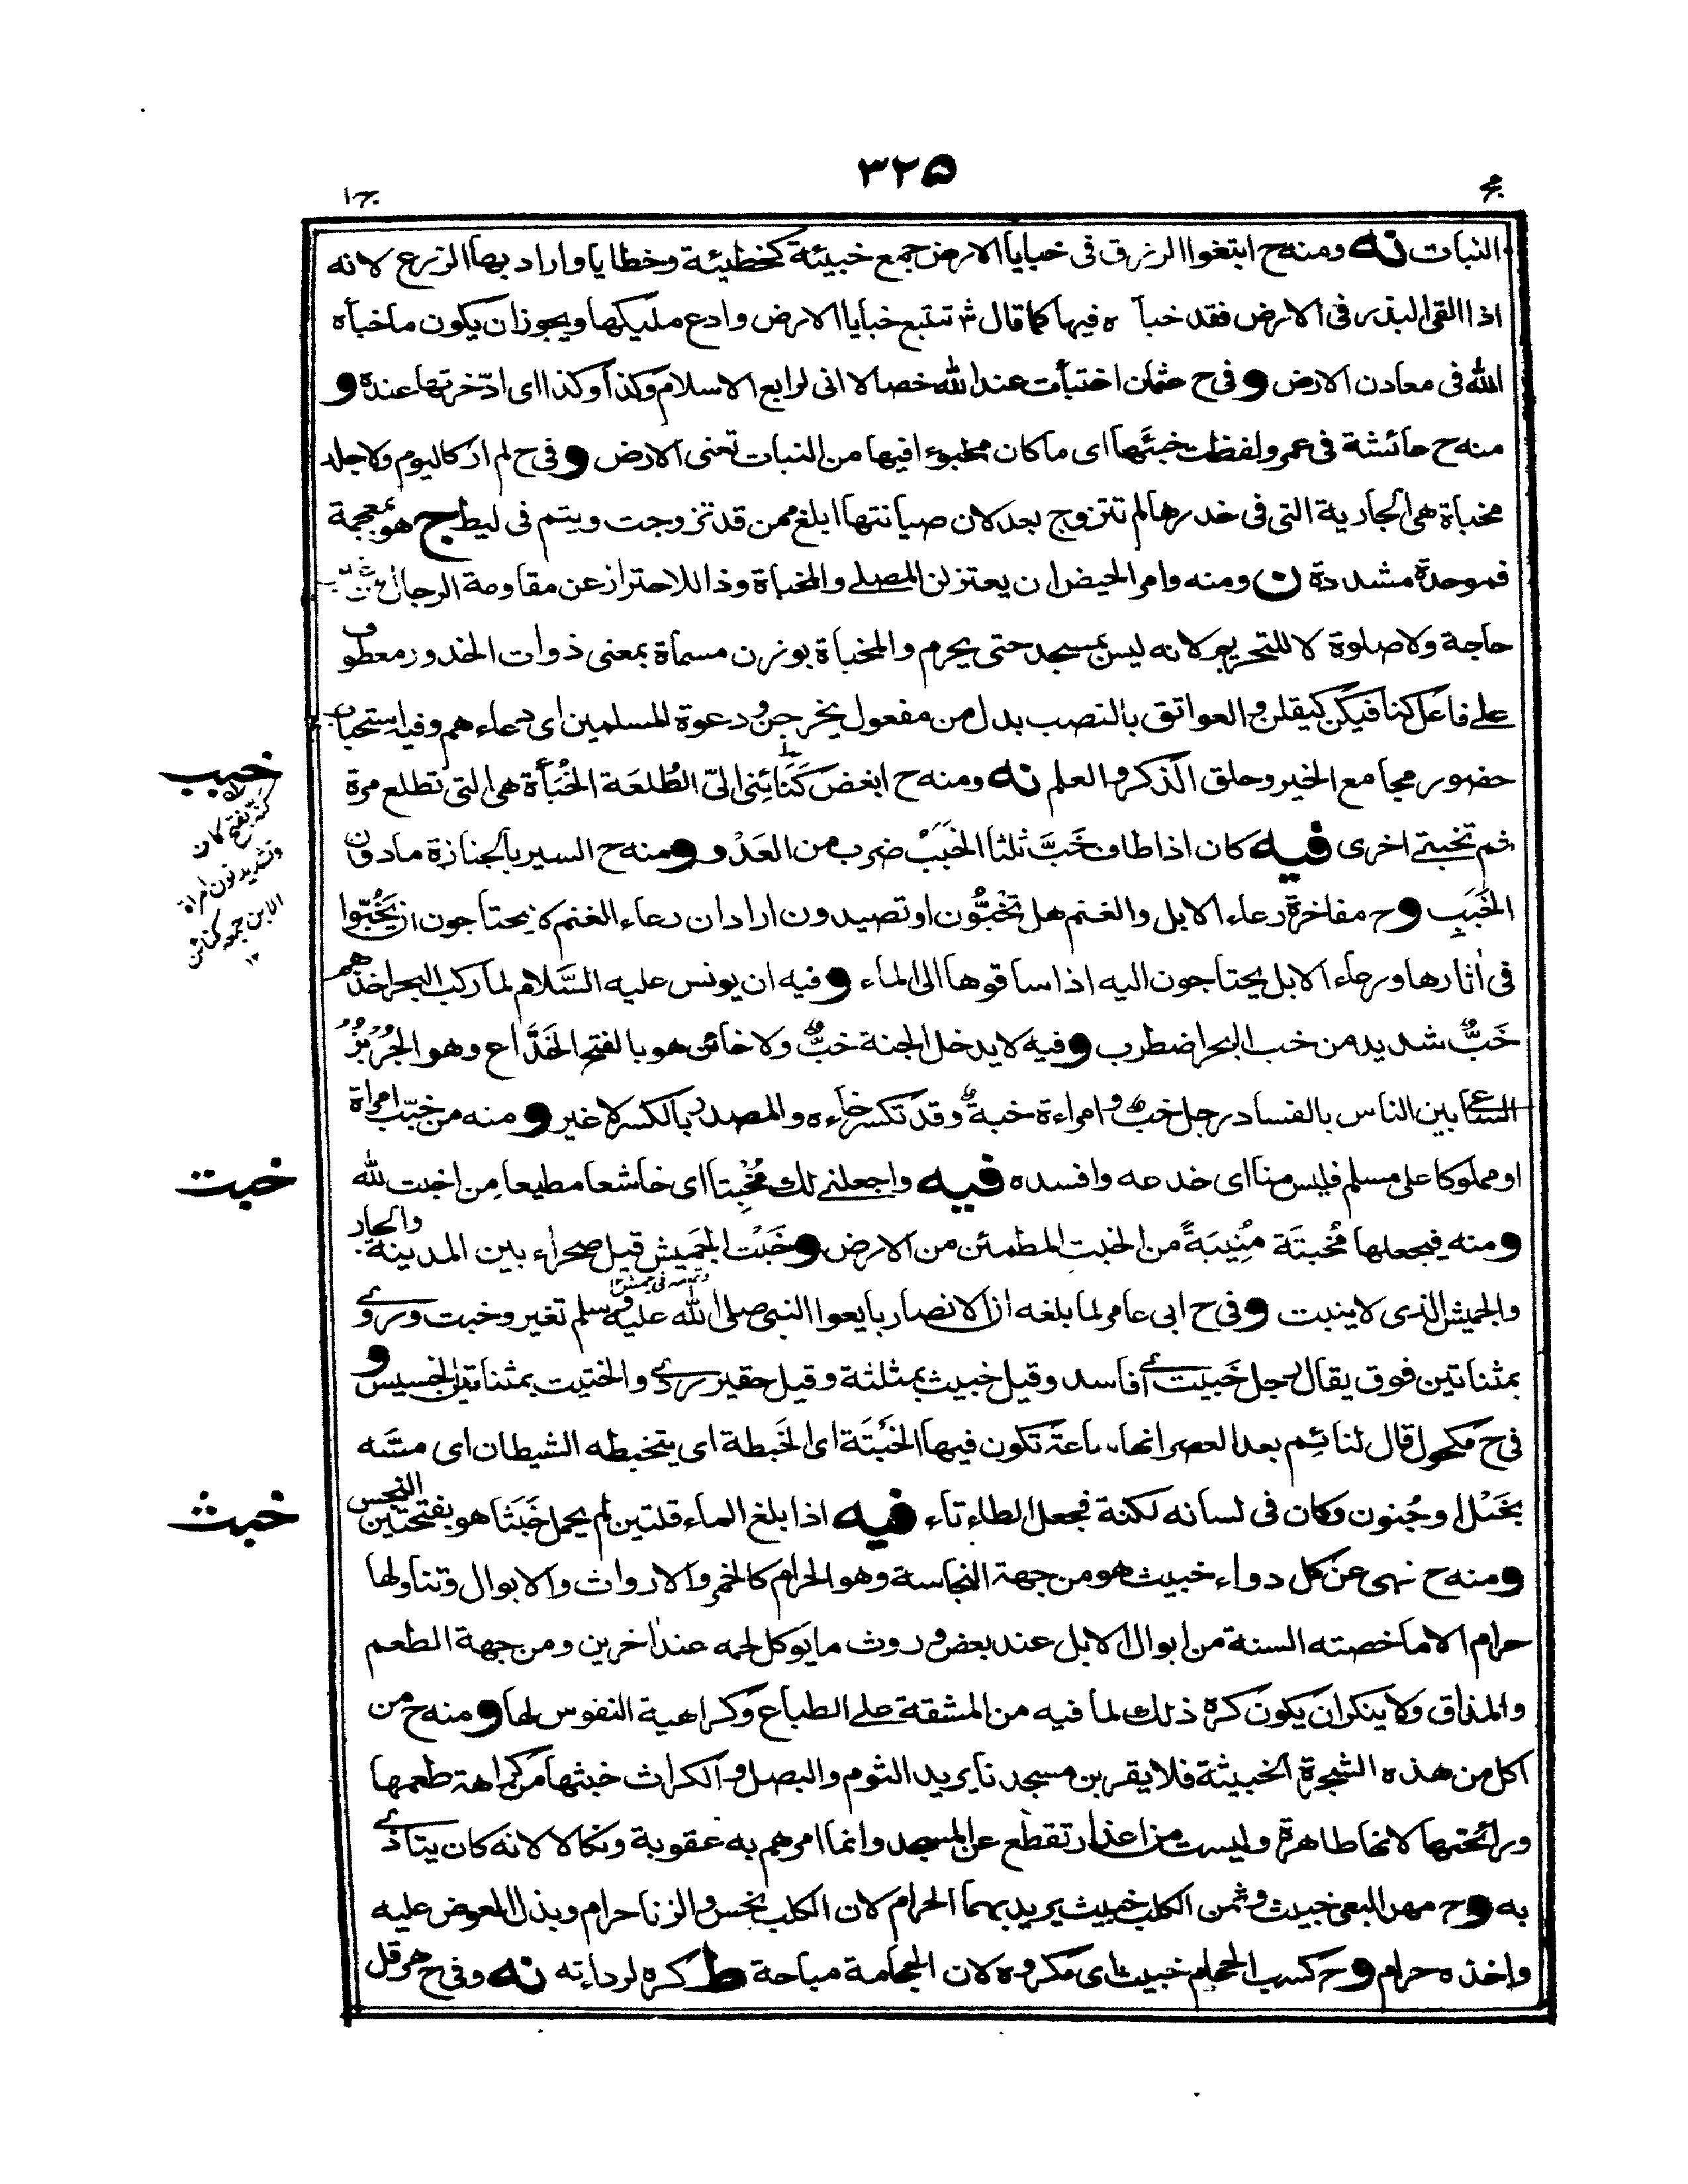 ٣٢٥
مج
ج١
النبات نه ومنه ح ابتغوا الرزق فى خبايا الارض جمع خبيئة كخطيئة وخطايا واراد بها الزرع لانه
اذا القى البذر فى الارض فقد خبأ ه فيها كما قال ش تتبع خبايا الارض وادع مليكها ويجوز ان يكون ما خبأه
الله فى معادن الارض و فى ح عثمان اختبأت عند الله خصالا انى لرابع الاسلام وكذا وكذا اى ادّخرتها عنده و
منه ح عائشة فى عمر ولفظت خبئها اى ما كان مخبوءا فيها من النبات تعنى الارض و فى ح لم ار كاليوم ولا جلد
مخباة هى الجارية التى فى خدرها لم تتزوج بعد لان صيانتها ابلغ ممن قد تزوجت ويتم فى ليط ج هو بمعجمة
فموحدة مشددة ن ومنه وامر الحيض ان يعتزلن المصلے والمخباة وذا للاحتراز عن مقاومة الرجال
حاجة ولا صلوة لا للتحريم لانه ليس بمسجد حتى يحرم والمخباة بوزن مسماة بمعنى ذوات الخدور معطوف
علے فاعل كنا فيكن كيقلن والعواتق بالنصب بدل من مفعول يخرجن ودعوة المسلمين اى دعاءهم وفيه استحباب
حضور مجامع الخير وحلق الذكر والعلم نه ومنه ح ابغض كنائنى الىّ الطُلعَة الخُبَأة هى التى تطلع مرة
ثم تختبئ اخرى فيه كان اذا طاف خَبَّ ثلثا الخَبَبْ ضرب من العَدْو و ومنه ح السير بالجنازة ما دون
الخَبَبِ و ح مفاخرة رعاء الابل والغنم هل تخُبّون او تصيدون اراد ان رعاء الغنم لا يحتاجون ان يَخُبّوا
فى اٰثارها ورعاء الابل يحتاجون اليه اذا ساقوها الى الماء و فيه ان يونس عليه السَّلام لما ركب البحر اخذهم
خَبٌّ شديد من خب البحر اضطرب و فيه لا يدخل الجنة خبٌّ ولا خائن هو بالفتح الخَدَّاع وهو الجُرْبُزُ
الساعى بين الناس بالفساد رجل خبٌ وامراءة خبةٌ وقد تكسر خاءه والمصدر بالكسر لا غير و منه من خبّب امراة
او مملوكا على مسلم فليس منا اى خدعه وافسده فيه واجعلنے لك مُخْبِتا اى خاشعا مطيعا مِن اخبت لله
ومنه فيجعلها مُخْبِتَة مُنِيبَةً من الخبت المطمئن من الارض وخَبْت الجَمِيش قيل صحراء بين المدينة والجار
والجميش الذى لا ينبت و فى ح ابى عامر لما بلغه ان الانصار بايعوا النبى صلى الله عليه وسلم تغير وخبت وروى
وتمامه فى جمش
بمثناتين فوق يقال رجل خَبيت اى فاسد وقيل خبيث بمثلثة وقيل حقير ردى والختيت بمثناتين الخسيس و
فى ح مكحول قال لنائم بعد العصر انها ساعة تكون فيها الخَبْتَة اى الخَبطة اى يتخبطه الشيطان اى مسَّه
بخَبْل او جُنون وكان فى لسانه لكنة فجعل الطاء تاء فيه اذا بلغ الماء قلتين لم يحمل خَبَثا هو بفتحتين النجس
ومنه ح نهى عن كل دواء خبيث هو من جهة النجاسة وهو الحرام كالخمر والارواث والابوال وتناولها
حرام الا ما خصته السنة من ابوال الابل عند بعض وروث ما يوكل لحمه عند اٰخرين ومن جهة الطعم
والمذاق ولا ينكر ان يكون كره ذلك لما فيه من المشقة علے الطباع وكراهية النفوس لها و منه ح من
اكل من هذه الشجرة الخبيثة فلا يقربن مسجدنا يريد الثوم والبصل والكراث خبثها من كراهة طعمها
ورائحتها لانها طاهرة وليست من اعذار تقطع عن المسجد وانما امرهم به عقوبة ونكالا لانه كان يتاذى
به و ح مهر البغى خبيث وثمن الكلب خبيث يريد بهما الحرام لان الكلب نجس والزنا حرام وبذل العوض عليه
واخذه حرام و ح كسب الحجام خبيث اى مكروه لان الحجامة مباحة ط كره لرداءته نه وفى ح هرقل
خبب
كنة بفتح كاف
وتشديد نون امراة
الابن جمعه كنائن
١٢
خبت
خبث